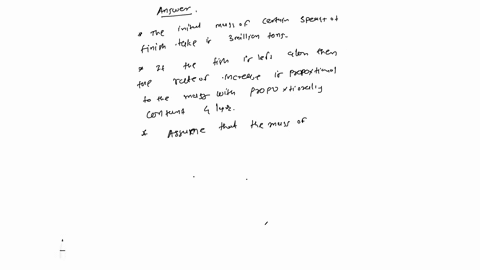 Answer.
* The initial mass of certain species of
finish take is 3 million tons.
* If the fish is left alone then
the rate of increase is proportional
to the mass with proportionality
constant 4 /yr.
* Assume that the mass of